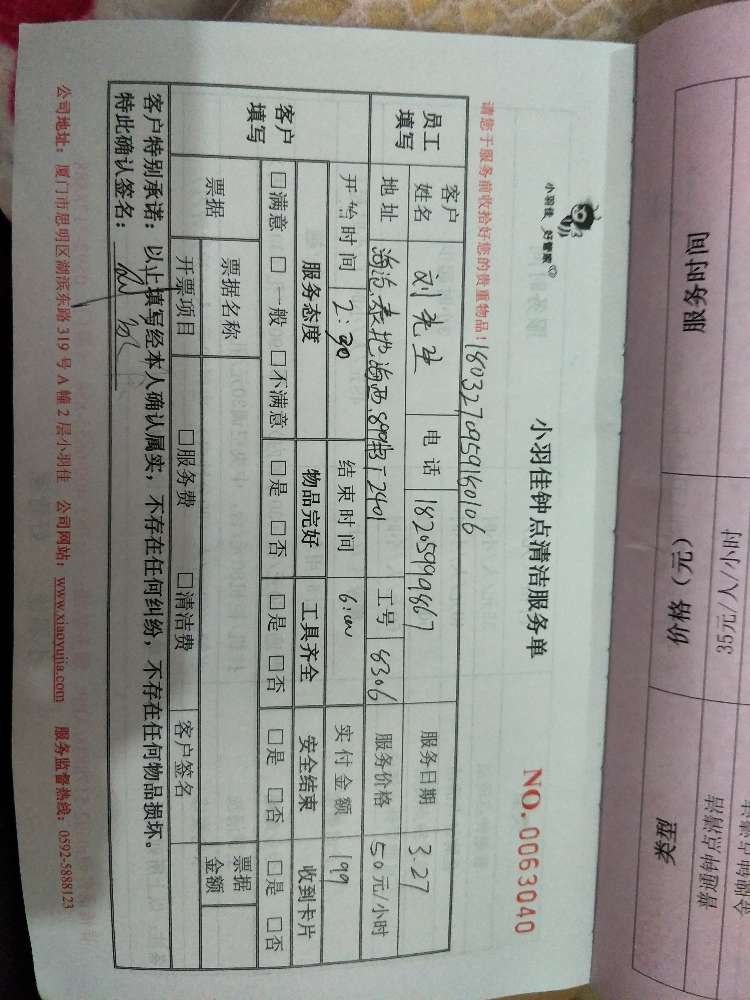 小羽佳 好管家
小羽佳钟点清洁服务单
NO. 0063040
请您于服务前收拾好您的贵重物品!
1803270959160106
员工填写
客户姓名 刘先生 电话 18205999867 服务日期 3.27
地址 工号 8306 服务价格 50元/小时
开始时间 2:30 结束时间 6:00 实付金额 199
客户填写
服务态度 物品完好 工具齐全 安全结束 收到卡片
□满意 □一般 □不满意 □是 □否 □是 □否 □是 □否 □是 □否
票据 票据名称 票据金额
开票项目 □服务费 □清洁费 客户签名
客户特别承诺:以上填写经本人确认属实,不存在任何纠纷,不存在任何物品损坏。
特此确认签名:
公司地址:厦门市思明区湖滨东路319号A幢2层小羽佳 公司网站:www.xiaoyujia.com 服务监督热线:0592-5888123
服务时间
价格(元)
35元/人/小时
类型
普通钟点清洁